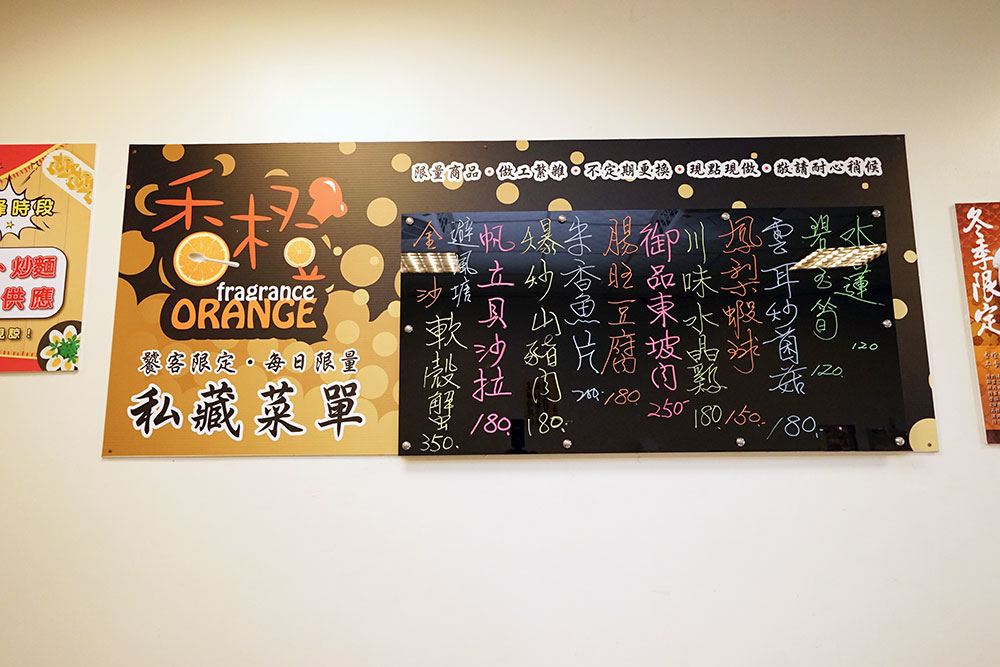 香橙
fragrance
ORANGE
饕客限定·每日限量
私藏菜單
限量商品·做工繁雜·不定期更換·現點現做·敬請耐心稍候
水蓮 120
碧玉筍 120
雲耳炒菌菇 180.
鳳梨蝦球 150.
川味水晶雞 180
御品東坡肉 250
腸旺豆腐 180
宋香魚片 200.
爆炒山豬肉 180.
帆立貝沙拉 180.
避風塘
金沙軟殼蟹 350.
時段
炒麵
供應
見諒！
冬季限定